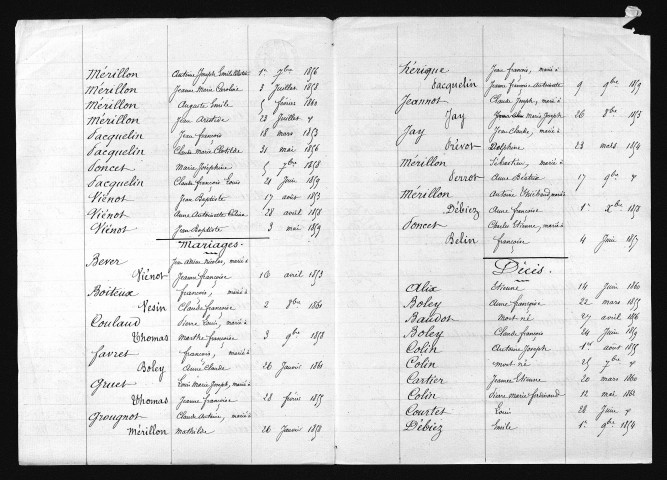 Mérillon Antoine Joseph Emile 1er 7bre 1856
Mérillon Jeanne Marie Caroline 3 Juillet 1858
Mérillon Auguste Emile 5 février 1860
Mérillon Jean Aristide 23 Juillet "
Jacquelin Jean françois 18 mars 1853
Jacquelin Claude Marie Clotilde 31 mai 1856
Poncet Marie Joséphine 5 7bre 1858
Jacquelin Claude françois Louis 21 Juin 1859
Viénot Jean Baptiste 17 août 1853
Viénot Anne Antoinette 28 avril 1858
Viénot Jean Baptiste 3 mai 1859
Mariages.
Bever Jean Nicolas, marié à
Viénot Jeanne françoise 16 avril 1853
Boiteux françois, marié à
Vesin Claude françoise 2 8bre 1861
Coulaud Pierre Louis, marié à
Thomas Marthe françoise 3 9bre 1858
Favret françois, marié à
Boley Anne Claude 26 Janvier 1861
Gruet Louis Marie Joseph, marié à
Thomas Jeanne françoise 28 février 1855
Grougnot Claude Antoine, marié à
Mérillon Mathilde 26 Janvier 1858
Hérique Jean françois, marié à
Jacquelin Jeanne françoise Antoinette 9 9bre 1859
Jeannot Claude Joseph, marié à
Jay Marie Joseph 26 8bre 1853
Jay Jean Claude, marié à
Prévot Delphine 23 mars 1854
Mérillon Sébastien, marié à
Perrot Anne 17 9bre "
Mérillon Antoine marié à
Débiez Anne françoise 1er Xbre 1858
Poncet Charles Etienne, marié à
Belin françoise 4 Juin 1857
Décès.
Alix Etienne 14 Juin 1860
Boley Anne françoise 22 mars 1855
Baudot Mort-né 27 avril 1856
Boley Claude françois 24 Juin 1859
Colin Antoine Joseph 1er août 1855
Colin Mort-né 25 7bre "
Cartier Jeanne Etienne 20 mars 1860
Colin Pierre Marie ferdinand 12 mai 1862
Courtet Louis 28 Juin "
Débiez Emile 1er 9bre 1854